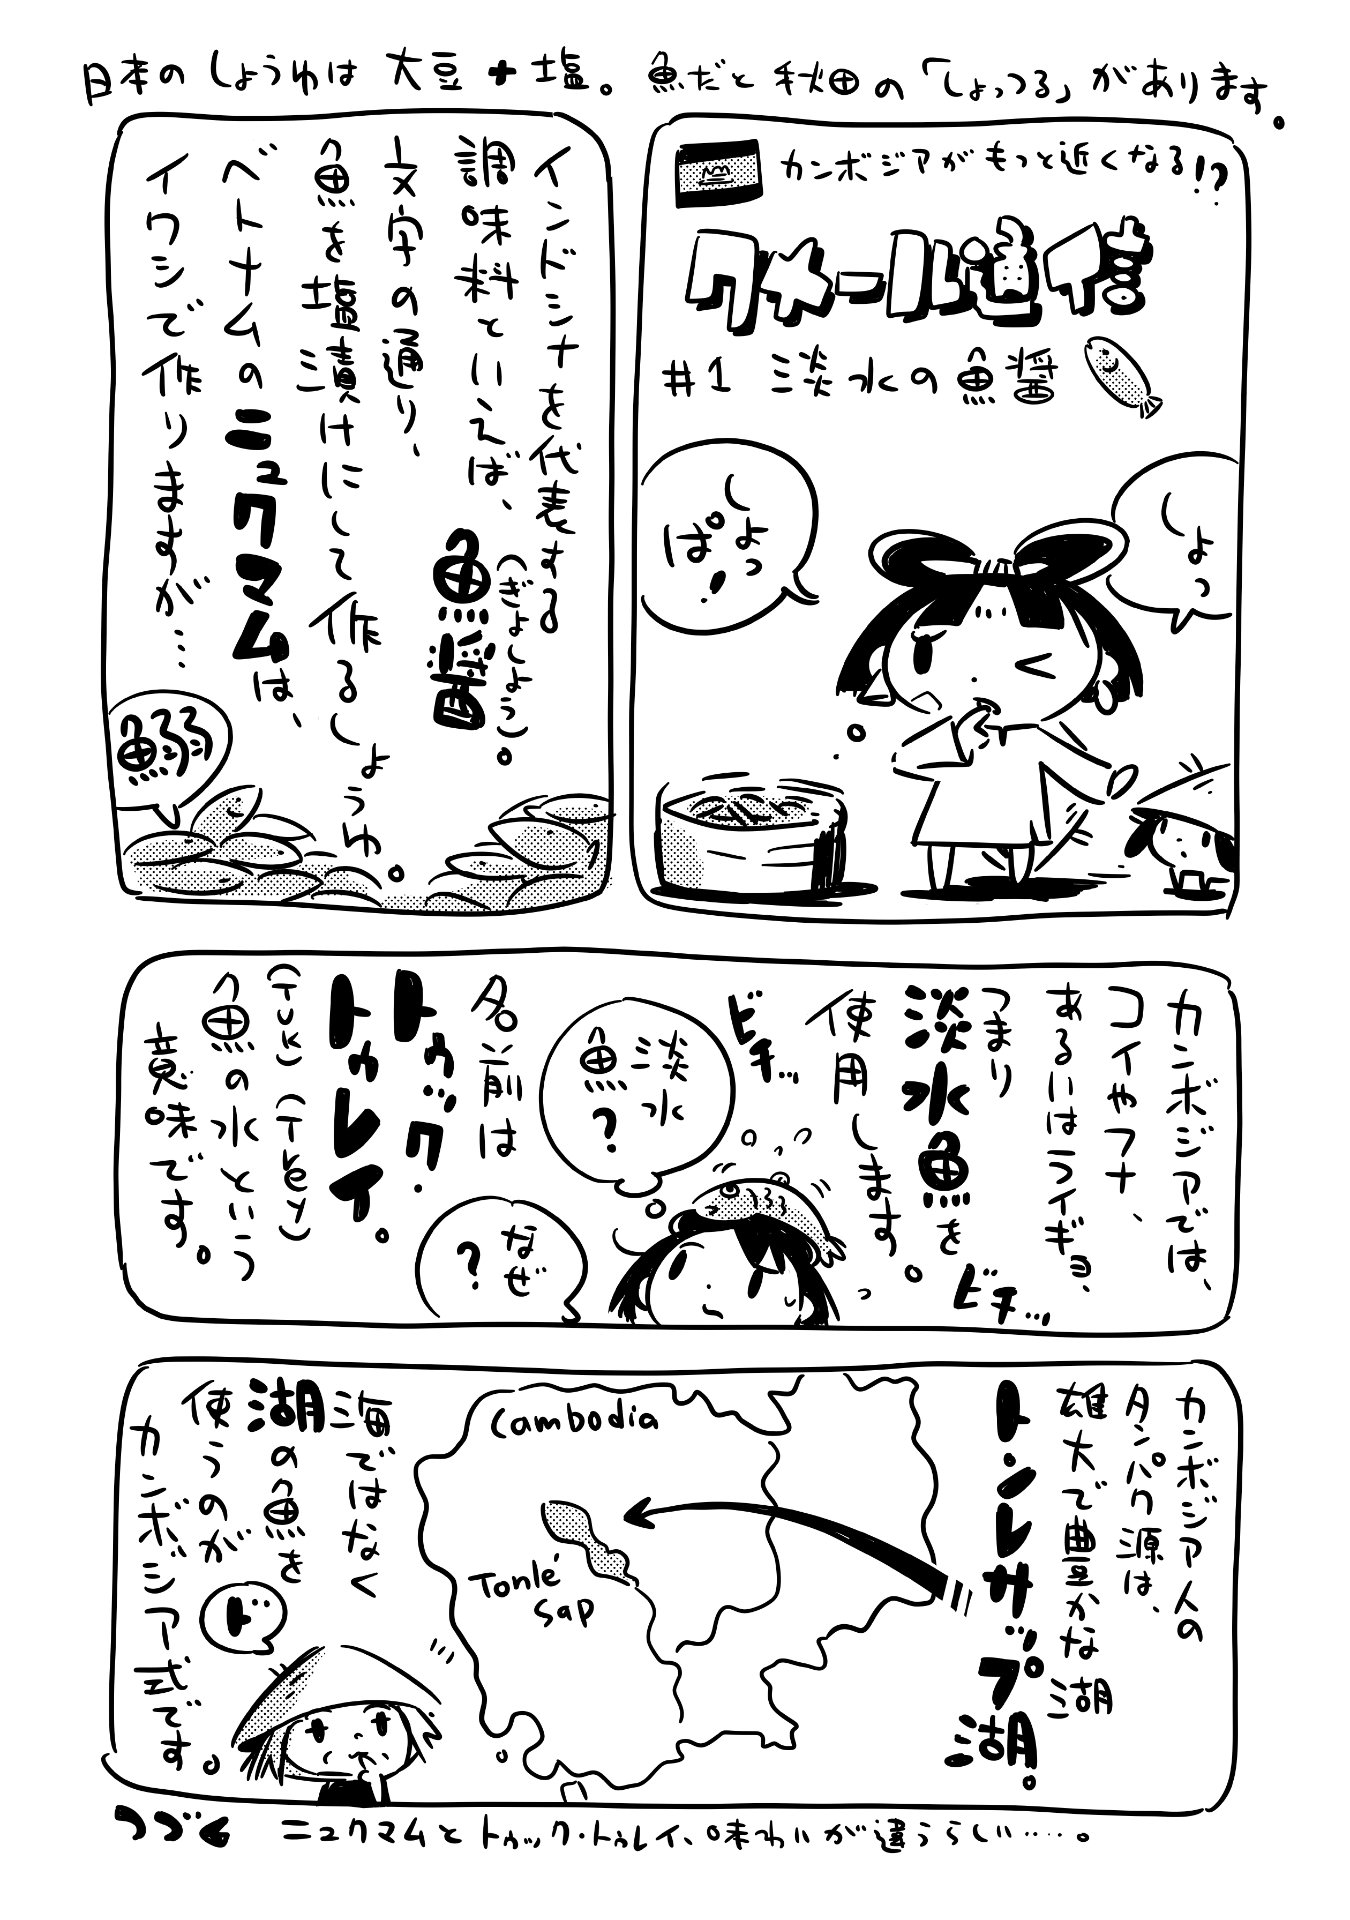 日本のしょうゆは 大豆+塩。 魚だと秋田の「しょっつる」があります。
カンボジアがもっと近くなる!?
クメール通信
#1 淡水の魚醤
しょっ
しょっ
ぱ!
インドシナを代表する
調味料といえば、
魚醤
(ぎょしょう)。
文字の通り、
魚を塩漬けにして作るしょうゆ。
ベトナムのニュクマムは、
イワシで作りますが…
鰯
カンボジアでは、
コイやフナ、
あるいはライギョ、
つまり
淡水魚を
使用します。
ビチ…
ビチ…
淡水
魚?
なぜ
?
名前は
トゥック・
トゥレイ。
(Tuk)(Trey)
魚の水という
意味です。
カンボジア人の
タンパク源は、
雄大で豊かな湖
トンレサップ湖。
Cambodia
Tonlé
Sap
海ではなく
湖の魚を
使うのが
カンボジア式です。
ド
つづく
ニュクマムとトゥック・トゥレイ、味わいが違うらしい……。